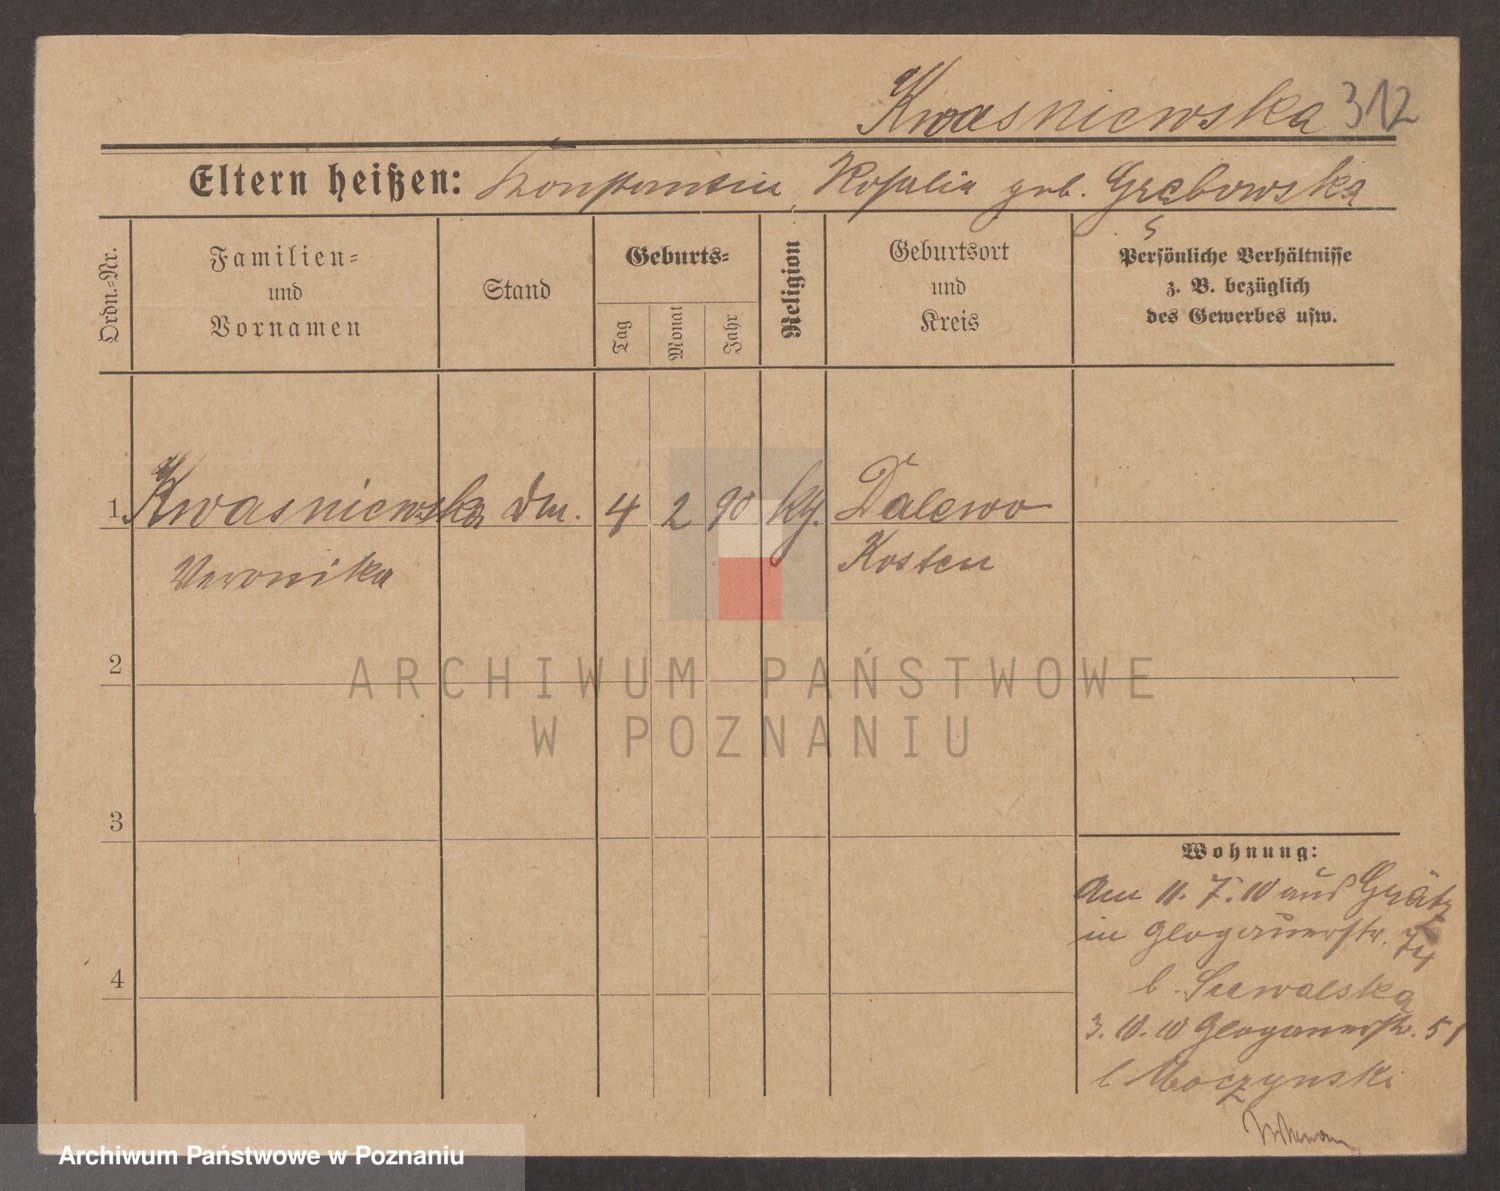 Kwasniewska 312
Eltern heißen: Konstantin, Rosalie geb. Grabowska
Ordn.-Nr.
Familien-
und
Vornamen
Stand
Geburts-
Tag
Monat
Jahr
Religion
Geburtsort
und
Kreis
Persönliche Verhältnisse
z. B. bezüglich
des Gewerbes usw.
1 Kwasniewska Dm. 4 2 90 kth. Dalewo
Veronika Kosten
2
ARCHIWUM PAŃSTWOWE
W POZNANIU
3
Wohnung:
Am 11. 7. 10 aus Grätz
in Glogauerstr. 74
b. Suwalska
4
3. 10. 10 Glogauerstr. 51
b Moczynski
Archiwum Państwowe w Poznaniu